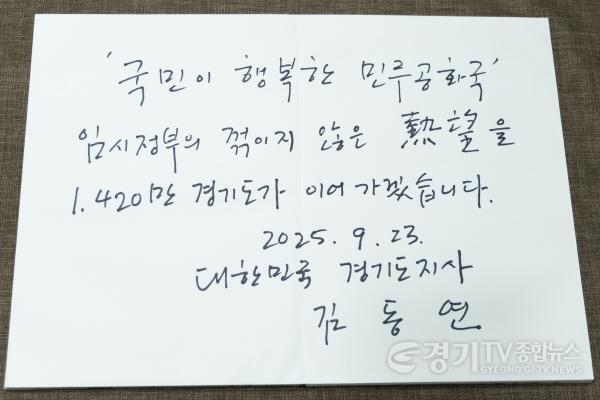 '국민이 행복한 민주공화국'
임시정부의 꺾이지 않은 熱望을
1.420만 경기도가 이어 가겠습니다.
2025. 9. 23.
대한민국 경기도지사
김 동 연
경기TV종합뉴스
GYEONG GI TV NEWS